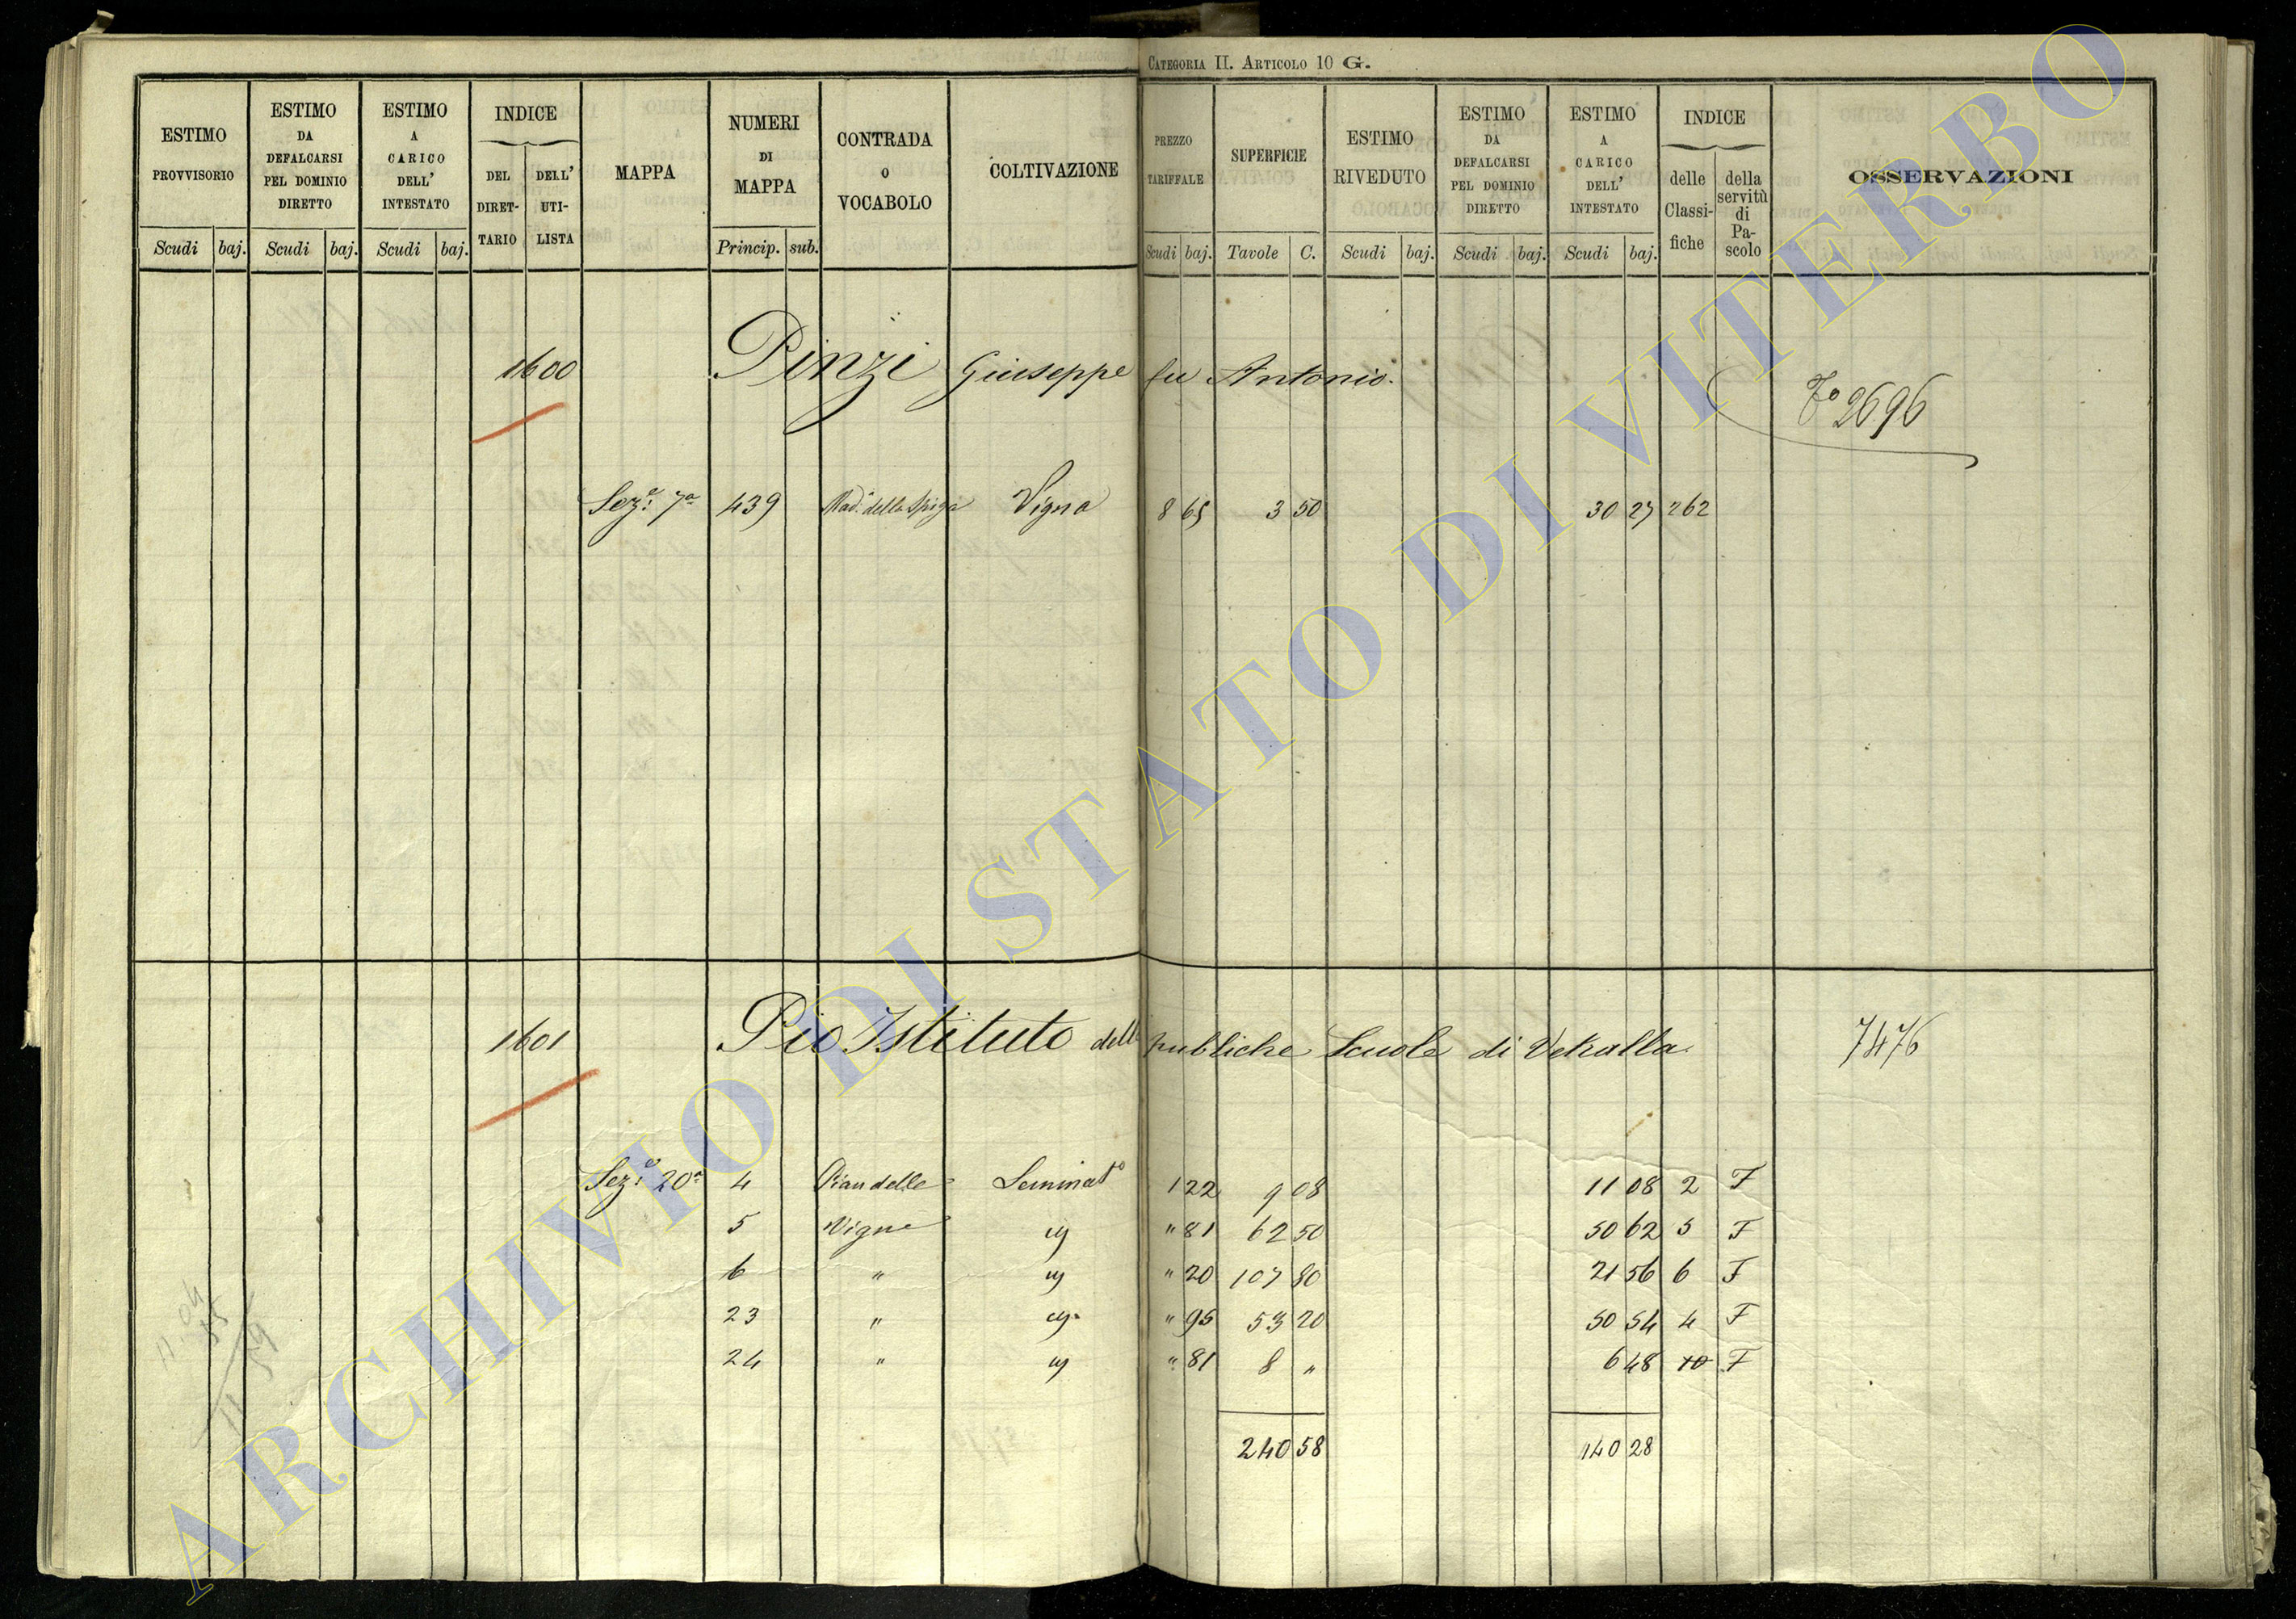 CATEGORIA II. ARTICOLO 10 G.
ESTIMO PROVVISORIO Scudi baj.
ESTIMO DA DEFALCARSI PEL DOMINIO DIRETTO Scudi baj.
ESTIMO A CARICO DELL' INTESTATO Scudi baj.
INDICE DEL DIRET-TARIO DELL' UTI-LISTA
MAPPA
NUMERI DI MAPPA Princip. sub.
CONTRADA O VOCABOLO
COLTIVAZIONE
PREZZO TARIFFALE Scudi baj.
SUPERFICIE Tavole C.
ESTIMO RIVEDUTO Scudi baj.
ESTIMO DA DEFALCARSI PEL DOMINIO DIRETTO Scudi baj.
ESTIMO A CARICO DELL' INTESTATO Scudi baj.
INDICE delle Classi-fiche della servitù di Pa-scolo
OSSERVAZIONI
1600 Pinzi Giuseppe fu Antonio. Fo 2696
Seze: 7a 439 Mada della Spiga Vigna 8 65 3 50 30 27 262
1601 Pio Istituto delle publiche Scuole di Vetralla. 7476
Seze: 20a 4 Pian delle Seminato 1 22 9 08 11 08 2 F
5 Vigne " 81 62 50 50 62 5 F
6 " " 20 107 80 21 56 6 F
23 " " 95 53 20 50 54 4 F
24 " " 81 8 " 6 48 10 F
240 58 140 28
11.04
55
11 59
ARCHIVIO DI STATO DI VITERBO